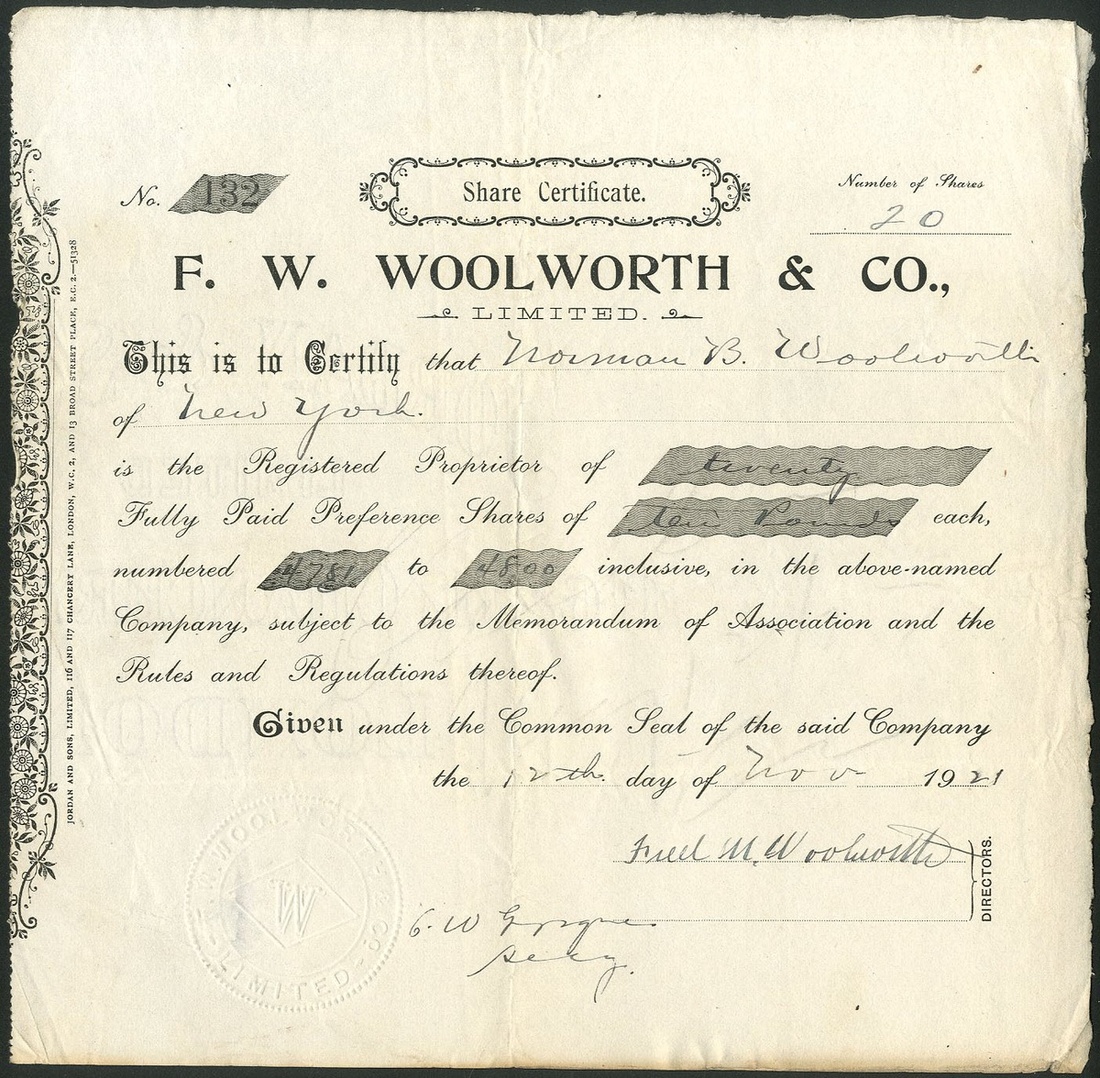 No. 132
Share Certificate.
Number of Shares
20
F. W. WOOLWORTH & CO.,
LIMITED.
This is to Certify that Norman B. Woolworth
of New York.
is the Registered Proprietor of twenty
Fully Paid Preference Shares of Ten Pounds each,
numbered 4781 to 4800 inclusive, in the above-named
Company, subject to the Memorandum of Association and the
Rules and Regulations thereof.
Given under the Common Seal of the said Company
the 12th day of Nov 1921
Fred M. Woolworth
DIRECTORS.
Secy.
F. W. WOOLWORTH & CO.
LIMITED
W
JORDAN AND SONS, LIMITED, 116 AND 117 CHANCERY LANE, LONDON, W.C. 2, AND 13 BROAD STREET PLACE, E.C. 2.—51328